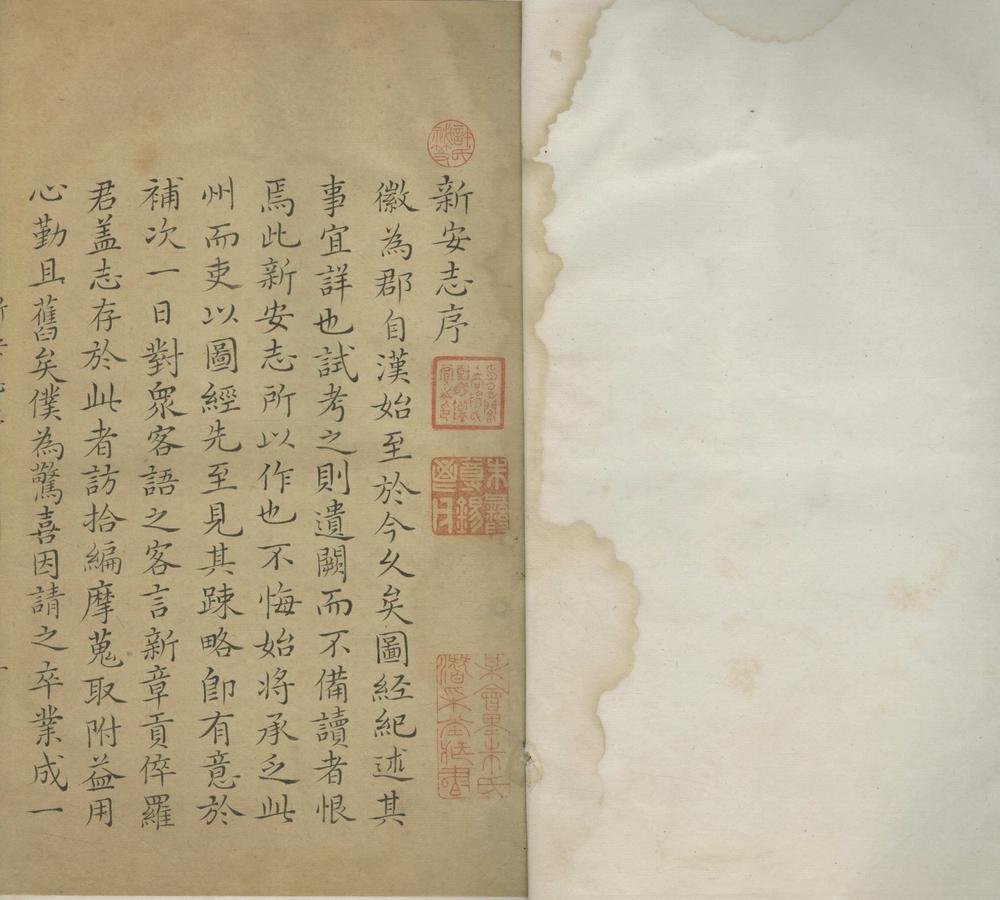 新安志序
徽為郡自漢始至於今久矣圖経紀述其
事宜詳也試考之則遺闕而不備讀者恨
焉此新安志所以作也不悔始将承乏此
州而吏以圖經先至見其踈略卽有意於
補次一日對衆客語之客言新章貢倅羅
君盖志存於此者訪拾編摩蒐取附益用
心勤且舊矣僕為驚喜因請之卒業成一